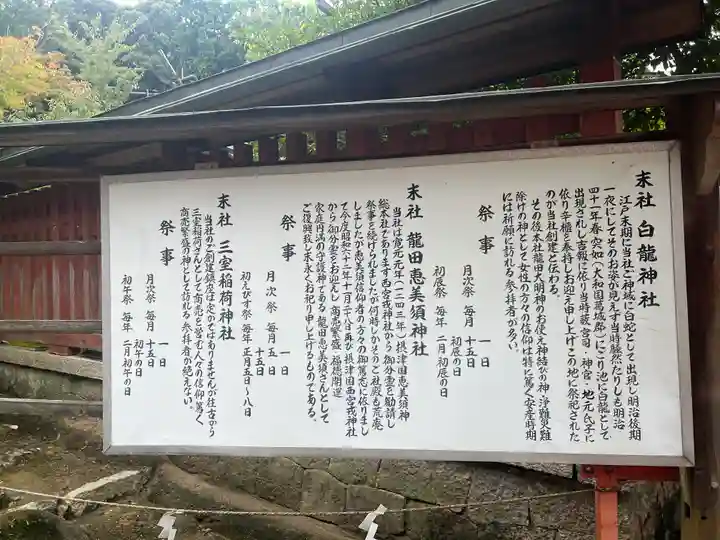 末社 白龍神社
江戸末期に当社ご神域に白蛇として出現し明治後期
一夜にしてそのお姿が見えず当時騒然たりしも明治
四十一年春突如(大和国葛城郡)にごり池に白龍として
出現されし吉報に依り当時蔽宮司・神官・地元氏子に
依り辛櫃を奉持しお迎え申し上げこの地に祭祀された
のが当社創建と伝わる。
その後本社龍田大明神のお使え神結びの神、浄難災難
除けの神として女性の方々の信仰は特に篤く安産時期
には祈願に訪れる参拝者が多い。
祭事
月次祭 毎月 一日
十五日
初辰の日
初辰祭 毎年 二月初辰の日
末社 龍田恵美須神社
当社は寛元元年(一二四三年)摂津国恵美須神
総本社であります西宮戎神社から御分霊を勧請し
祭事を続けられましたが何時しかそのご社殿も荒廃
しましたが恵美須信仰者の方々の御篤志に依りまし
て今度昭和六十二年十月二十八日再び摂津国西宮戎神社
から御分霊をお迎えし商売繁盛・福徳開運
家庭円満の守護神である龍田恵美須さんとして
ご復興致し末永くお祀り申し上げるものである。
祭事
月次祭 毎月 一日
五日
十五日
初えびす祭 毎年 正月五日〜八日
末社 三室稲荷神社
当社のご創建鎮座は定かではありませんが往古から
三室稲荷さんとして商売を営む人々の信仰篤く
商売繁盛の神として訪れる参拝者が絶えない。
祭事
月次祭 毎月 一日
十五日
初午の日
初午祭 毎年 二月初午の日